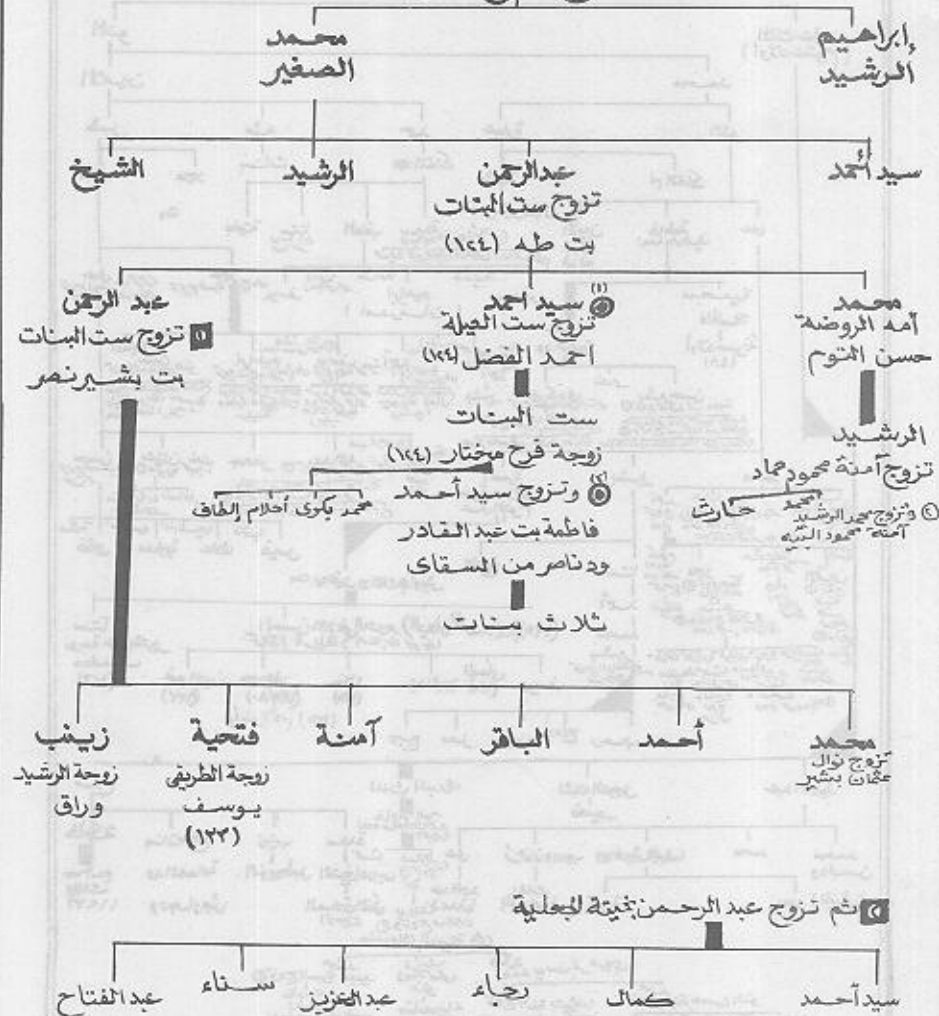 إبراهيم
الرشيد
محمد
الصغير
سيد أحمد
عبدالرحمن
تزوج ست البنات
بت طه (١٢٤)
الرشيد
الشيخ
محمد
أمه الروضة
حسن التوم
الرشيد
تزوج آمنة محمود حماد
محمد حارث
(٢) وتزوج محمد الرشيد
آمنة محمود البيه
(١) سيد احمد
تزوج ست العيلة
احمد الفضل (١٢٤)
ست البنات
زوجة فرح مختار (١٢٤)
محمد بكوى أحلام إلطاف
(٢) وتزوج سيد أحمد
فاطمة بت عبد القادر
ود ناصر من السقاى
ثلاث بنات
عبد الرحمن
١ تزوج ست البنات
بت بشير نصر
محمد
تزوج نوال
عثمان بشير
أحمد
الباقر
آمنة
فتحية
زوجة الطريفى
يوسف
(١٢٣)
زينب
زوجة الرشيد
وراق
٢ ثم تزوج عبد الرحمن بخيتة الجعلية
سيد أحمد
كمال
رجاء
عبد العزيز
سناء
عبد الفتاح